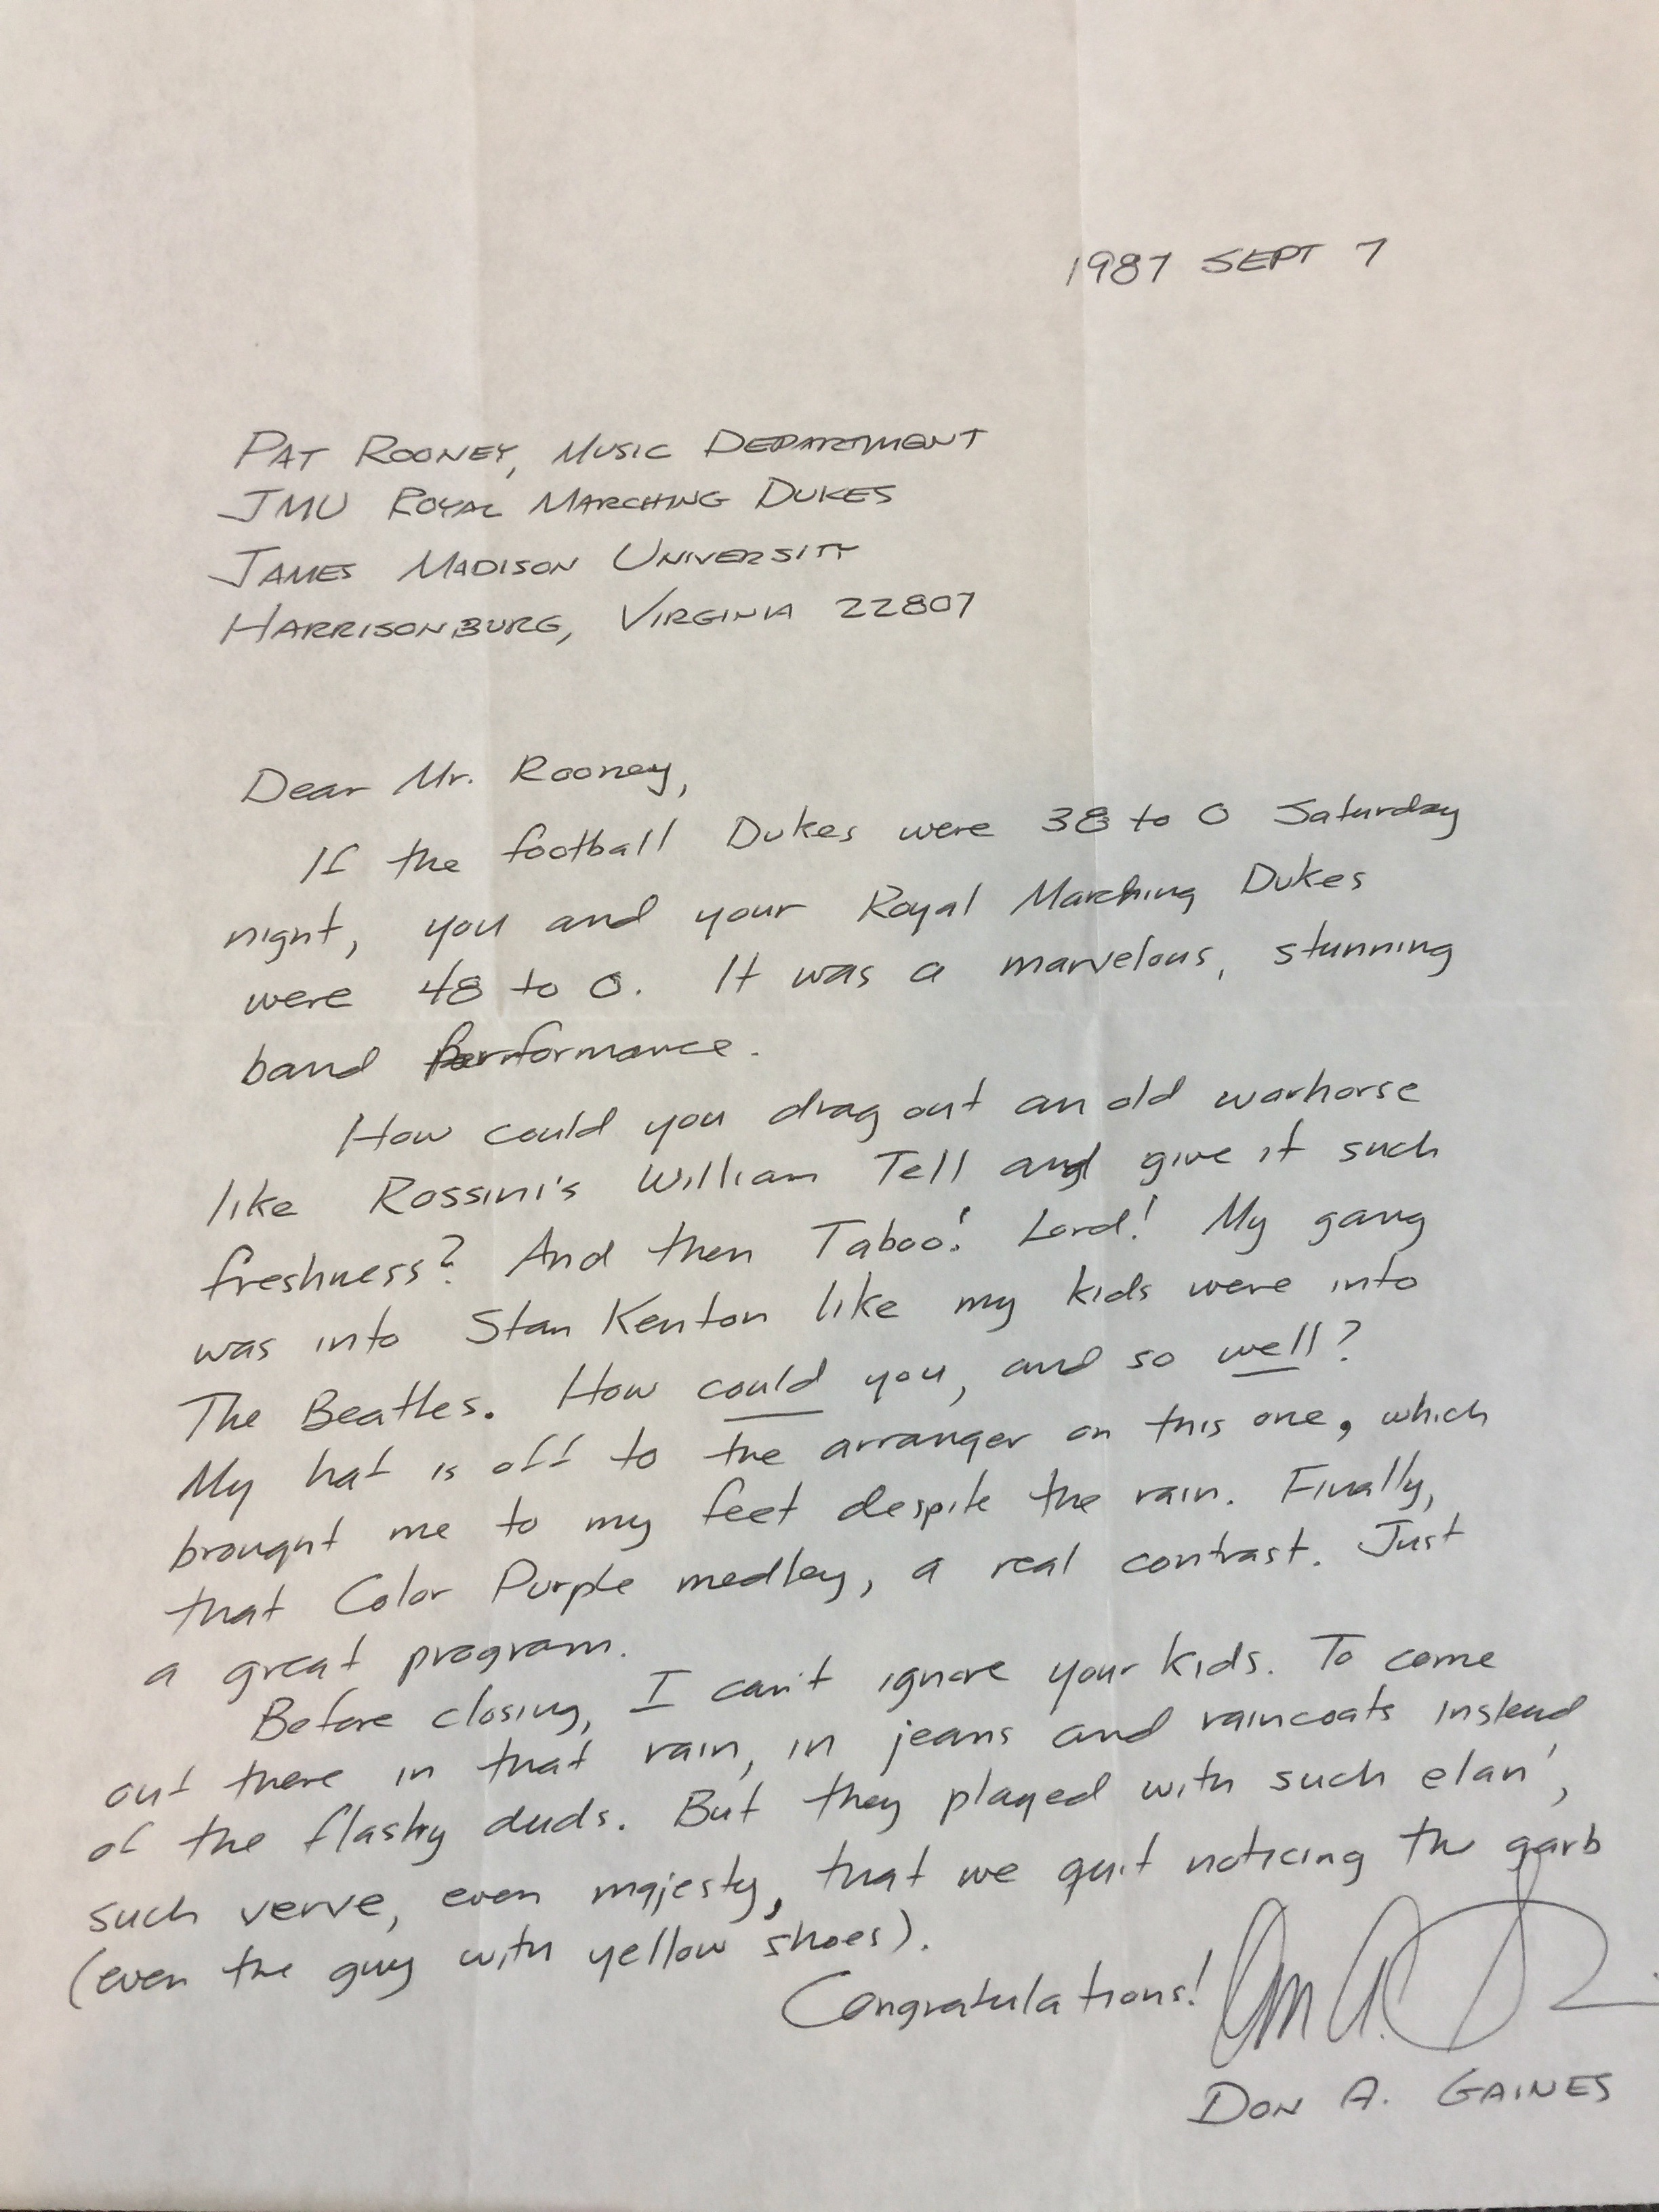 1987 SEPT 7
PAT ROONEY, MUSIC DEPARTMENT
JMU ROYAL MARCHING DUKES
JAMES MADISON UNIVERSITY
HARRISONBURG, VIRGINIA 22807
Dear Mr. Rooney,
If the football Dukes were 38 to 0 Saturday
night, you and your Royal Marching Dukes
were 48 to 0. It was a marvelous, stunning
band performance.
How could you drag out an old warhorse
like Rossini's William Tell and give it such
freshness? And then Taboo! Lord! My gang
was into Stan Kenton like my kids were into
The Beatles. How could you, and so well?
My hat is off to the arranger on this one, which
brought me to my feet despite the rain. Finally,
that Color Purple medley, a real contrast. Just
a great program.
Before closing, I can't ignore your kids. To come
out there in that rain, in jeans and raincoats instead
of the flashy duds. But they played with such elan',
such verve, even majesty, that we quit noticing the garb
(even the guy with yellow shoes).
Congratulations!
Don A. Gaines
DON A. GAINES